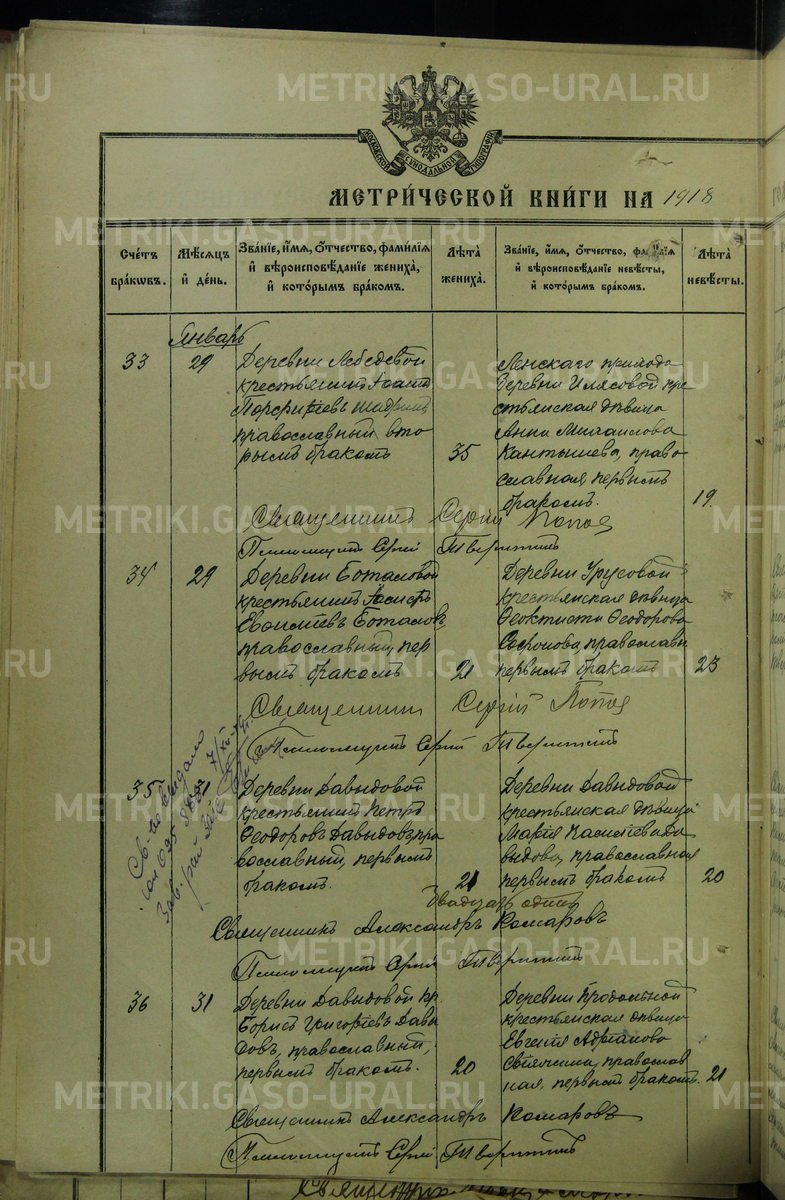 МОСКОВСКОЙ СѴНОДАЛЬНОЙ ТИПОГРАФІИ
МЕТРИ́ЧЕСКОЙ КНИ́ГИ НА 1918
Сче́тъ бра́кѡвъ.
Мѣ́сяцъ и҆ де́нь.
Зва́нїе, и҆́мѧ, ѻ҆́тчество, фами́лїѧ и҆ вѣроисповѣ́данїе жениха̀, и҆ кото́рымъ бра́комъ.
Лѣта̀ жениха̀.
Зва́нїе, и҆́мѧ, ѻ҆́тчество, фами́лїѧ и҆ вѣроисповѣ́данїе невѣ́сты, и҆ кото́рымъ бра́комъ.
Лѣта̀ невѣ́сты.
Январь
33
29
Деревни Лебедевой
крестьянинъ
Порфирiевъ
православный, вто
рымъ бракомъ
35
Ленскаго прихода
деревни Илясовой кре
стьянская дѣвица
Анна Михаилова
Кантышева, право
славная, первымъ
бракомъ.
19.
Священникъ Сергiй Попов
Псаломщикъ Сергiй
34
29
Деревни Боталовой
крестьянинъ
Боталовъ
православный, пер
вымъ бракомъ
21
Деревни Урусовой
крестьянская дѣвица
Феоктиста Феодорова
Софронова, православн
первымъ бракомъ
23
Священник Сергiй Попов
Псаломщикъ Сергiй
35
31
Деревни Давыдовой
крестьянинъ Петръ
Феодоровъ Давыдовъ, пра
вославный, первымъ
бракомъ.
21
двадцать одинъ
Деревни Давыдовой
крестьянская дѣвица
Марiя Да
выдова, православная
первымъ бракомъ
20
Св-во выдано
Священникъ Александръ Комаровъ
Псаломщикъ Сергiй
36
31
Деревни Давыдовой кр
Борисъ Григорiевъ Давы
довъ, православный,
первымъ бракомъ.
20
Деревни Продольной
крестьянская дѣвица
Евгенiя Адрiанова
православ
ная, первымъ бракомъ.
21
Священникъ Александръ Комаровъ
Псаломщикъ Сергiй
METRIKI.GASO-URAL.RU